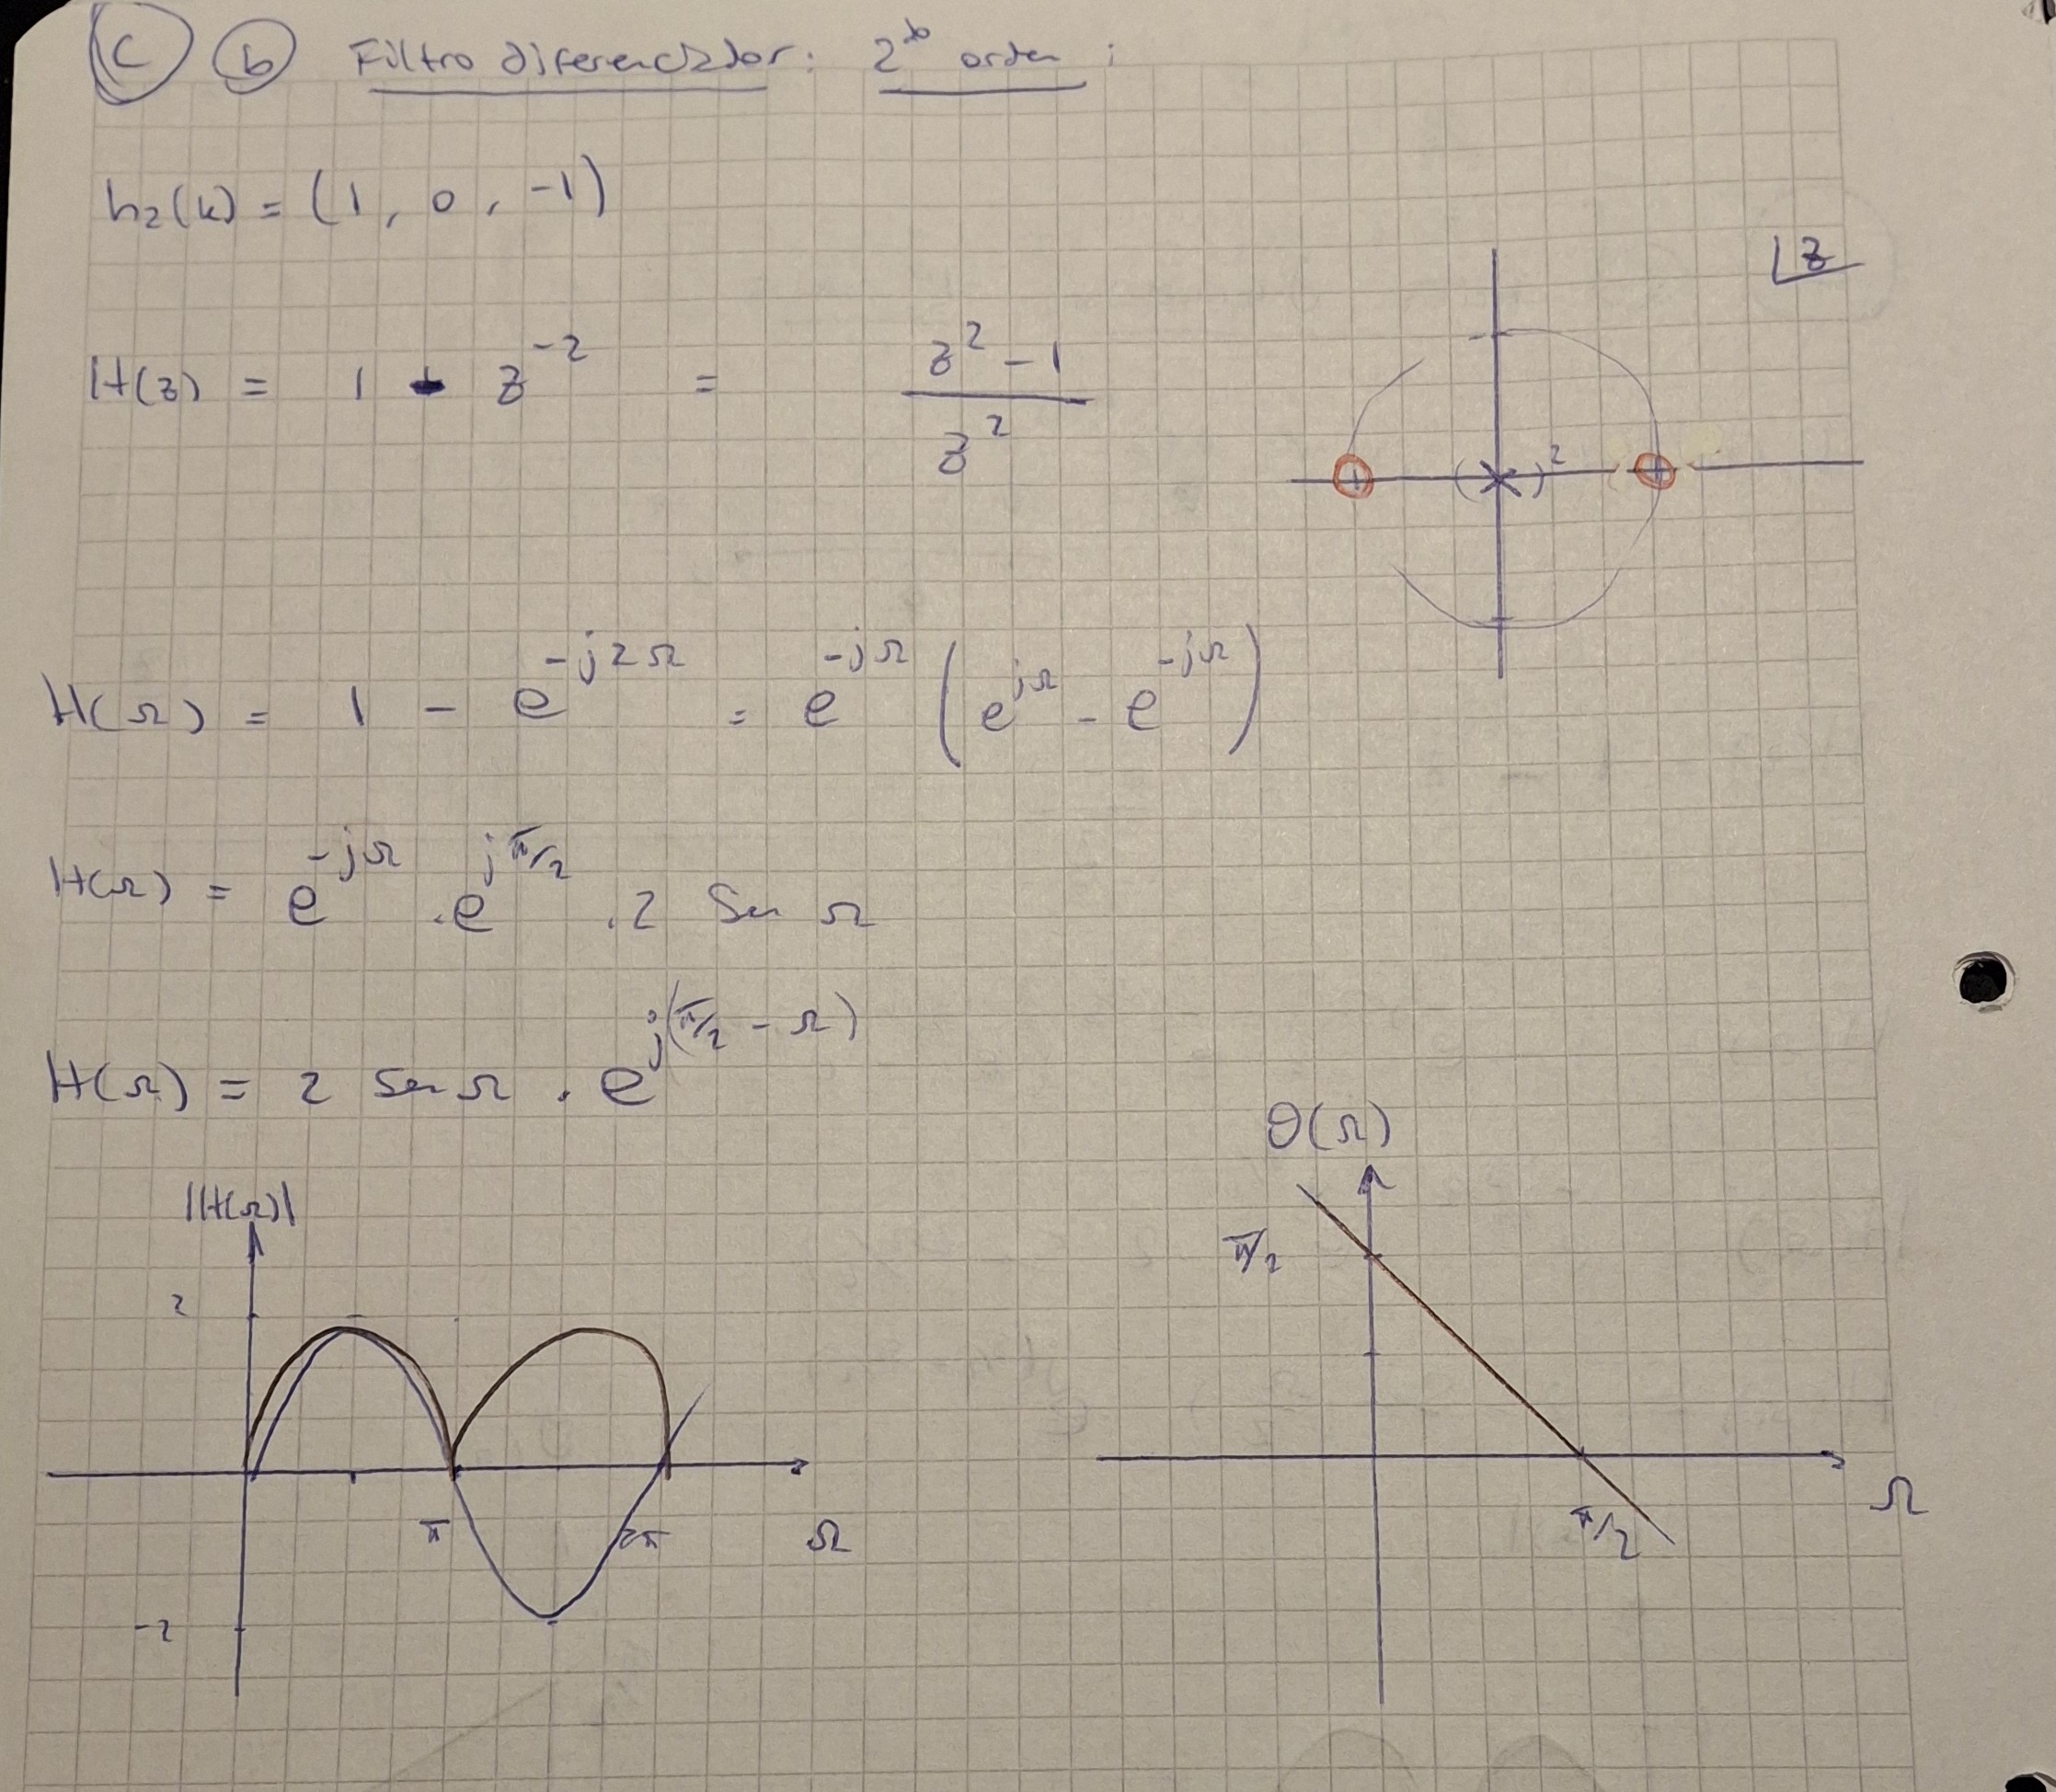 C b Filtro diferenciador: 2do orden:
h₂(k) = (1, 0, -1)
z
H(z) = 1 - z⁻² = (z² - 1) / z²
( × )²
H(Ω) = 1 - e^(-j2Ω) = e^(-jΩ) (e^(jΩ) - e^(-jΩ))
H(Ω) = e^(-jΩ) . e^(jπ/2) . 2 Sen Ω
H(Ω) = 2 Sen Ω . e^(j(π/2 - Ω))
|H(Ω)|
2
-2
π
2π
Ω
Θ(Ω)
π/2
π/2
Ω